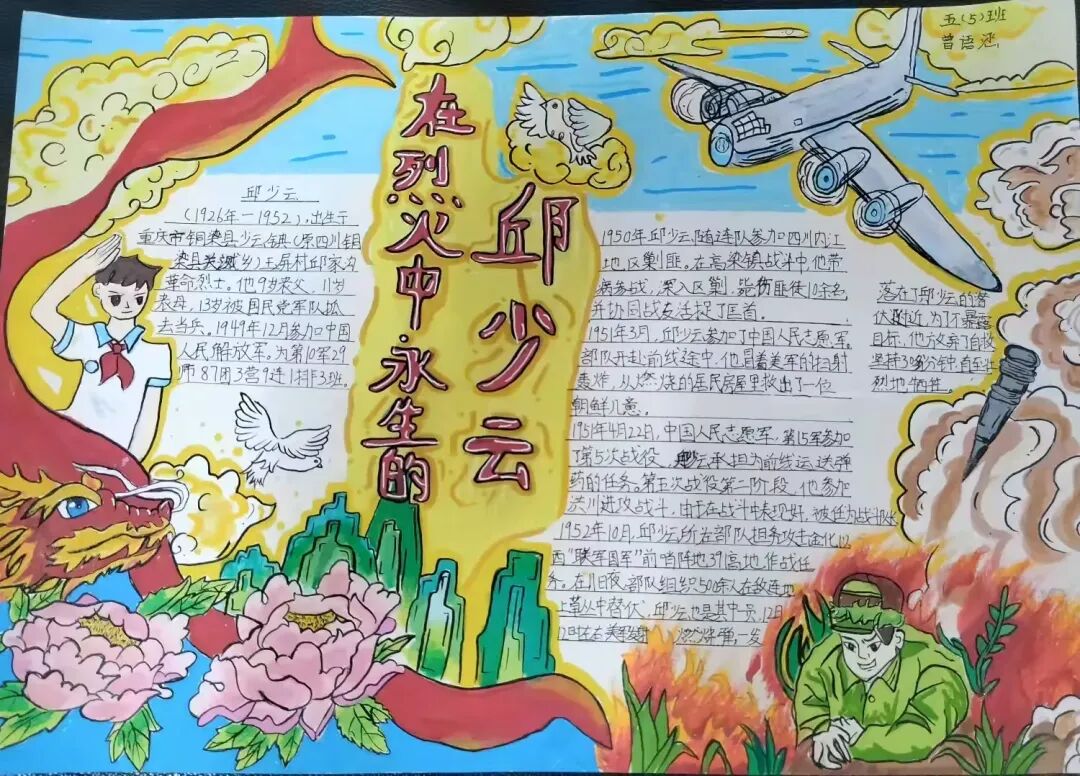 五(5)班
曾语涵
在烈火中永生的
邱少云
邱少云
(1926年—1952),出生于
重庆市铜梁县少云镇(原四川铜
梁县关溅乡)玉屏村邱家沟
革命烈士。他9岁丧父,11岁
丧母,13岁被国民党军队抓
去当兵。1949年12月参加中国
人民解放军,为第10军29
师87团3营9连1排3班。
1950年邱少云随连队参加四川内江
地区剿匪。在高梁镇战斗中,他带
病参战,突入区剿,毙伤匪徒10余名
并协同战友活捉了匪首。
1951年3月,邱少云参加了中国人民志愿军.
部队开赴前线途中,他冒着美军的扫射
轰炸,从燃烧的居民房屋里救出了一位
朝鲜儿童。
1951年4月22日,中国人民志愿军,第15军参加
了第5次战役,邱少云承担为前线运送弹
药的任务。第五次战役第二阶段,他参加
洪川进攻战斗,由于在战斗中表现好,被任为战斗
1952年10月,邱少云所在部队担务攻击金化以
西"联军国军"前哨阵地391高地,作战任
务。在11日夜,部队组织500余人在敌
上草丛中潜伏,邱少云也是其中一员,12日
12时左右 燃烧弹一发
落在了邱少云的潜
伏附近,为了不暴露
目标,他放弃了自救
坚持30多分钟,直至壮
烈地牺牲。